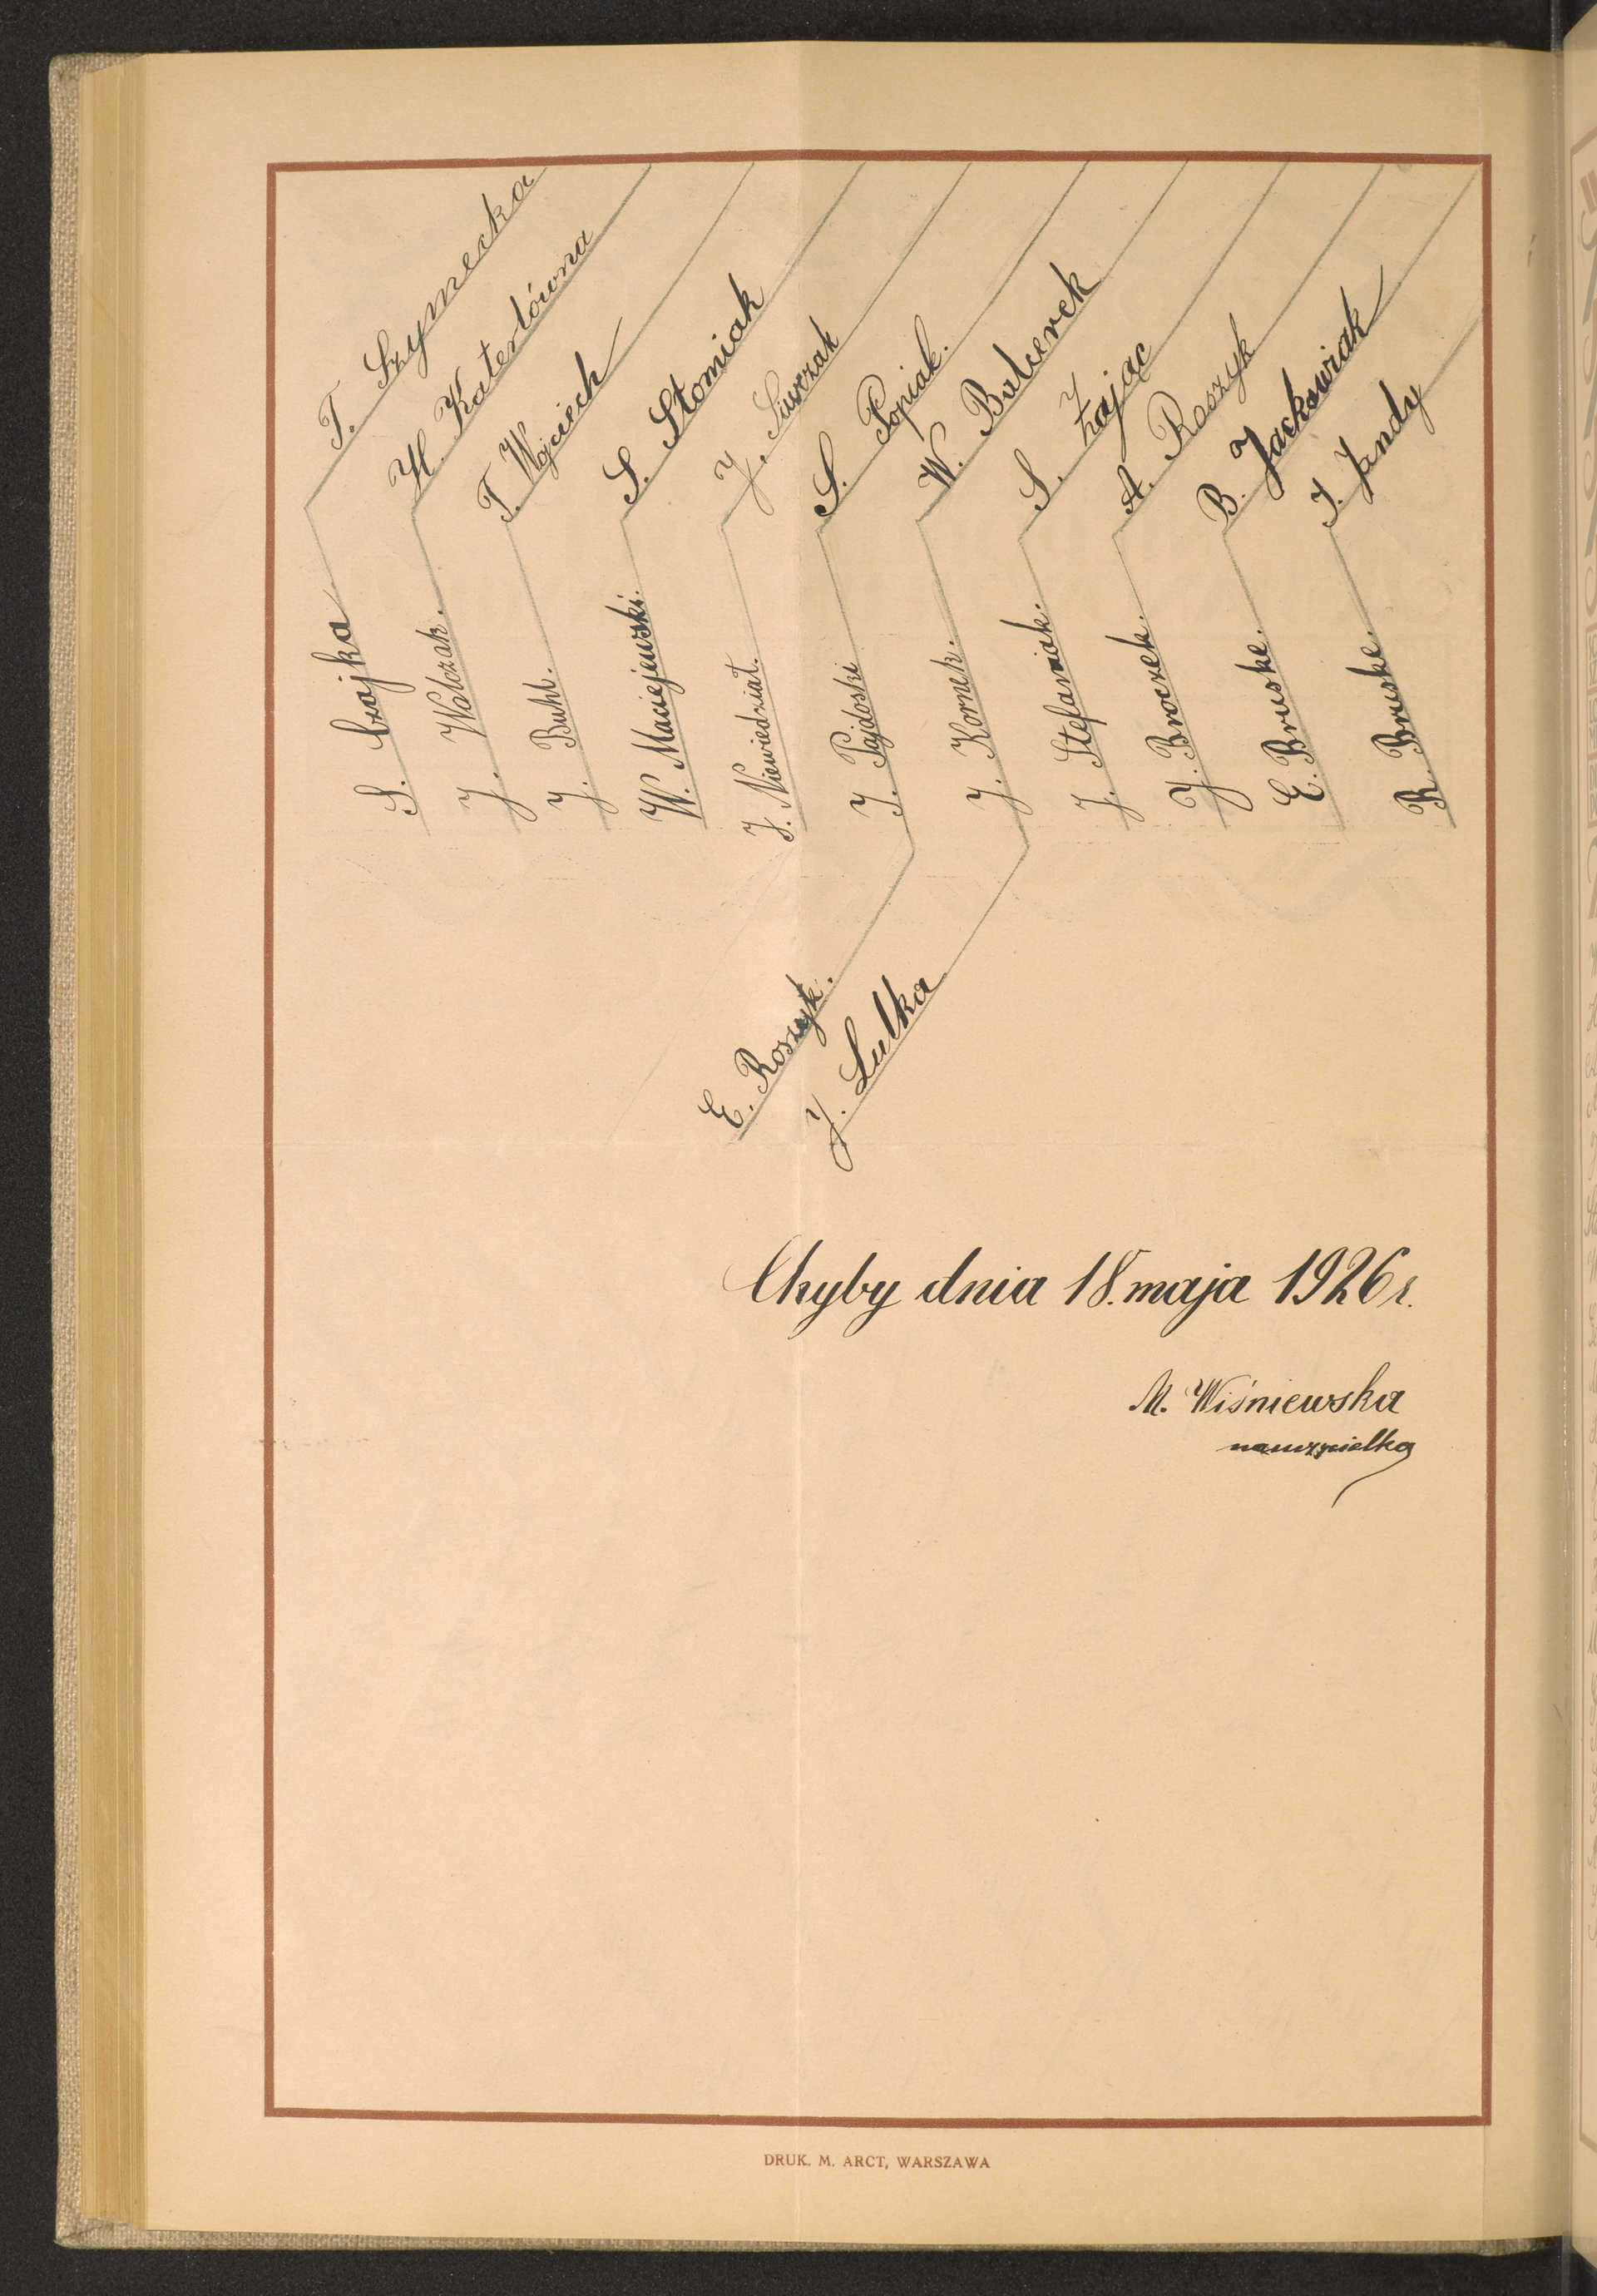 T. Szymecka
H. Katerlówna
T. Wojciech
S. Słomiak
J. Siuszak
S. Popiak.
W. Balcerek
S. Zając
A. Roszyk
B. Jackowiak
J. Jandy
S. Czajka
J. Walczak.
J. Buhl.
W. Maciejewski.
J. Niewiedział.
J. Pajdoski
J. Kornek.
J. Stefaniak.
J. Broczek.
E. Bruske.
R. Bruske.
E. Roszyk.
J. Lulka
Chyby dnia 18. maja 1926 r.
M. Wiśniewska
nauczycielka
DRUK. M. ARCT, WARSZAWA